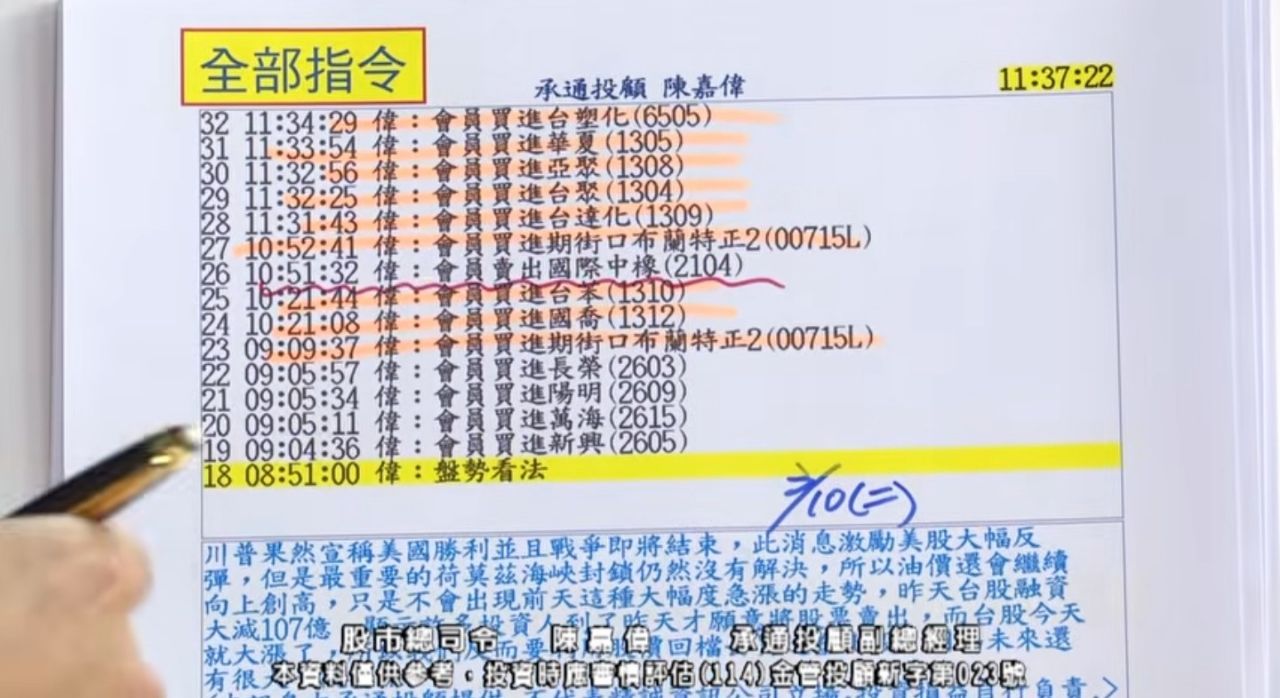 全部指令
承通投顧 陳嘉偉
11:37:22
32 11:34:29 偉：會員買進台塑化(6505)
31 11:33:54 偉：會員買進華夏(1305)
30 11:32:56 偉：會員買進亞聚(1308)
29 11:32:25 偉：會員買進台聚(1304)
28 11:31:43 偉：會員買進台達化(1309)
27 10:52:41 偉：會員買進期街口布蘭特正2(00715L)
26 10:51:32 偉：會員賣出國際中橡(2104)
25 10:21:44 偉：會員買進台苯(1310)
24 10:21:08 偉：會員買進國喬(1312)
23 09:09:37 偉：會員買進期街口布蘭特正2(00715L)
22 09:05:57 偉：會員買進長榮(2603)
21 09:05:34 偉：會員買進陽明(2609)
20 09:05:11 偉：會員買進萬海(2615)
19 09:04:36 偉：會員買進新興(2605)
18 08:51:00 偉：盤勢看法
3/10(二)
川普果然宣稱美國勝利並且戰爭即將結束，此消息激勵美股大幅反
彈，但是最重要的荷莫茲海峽封鎖仍然沒有解決，所以油價還會繼續
向上創高，只是不會出現前天這種大幅度急漲的走勢，昨天台股融資
大減107億 許多投資人到了昨天才願意將股票賣出，而台股今天
就大漲了， 而要 回檔 未來還
有很
股市總司令 陳嘉偉 承通投顧副總經理
本資料僅供參考，投資時應審慎評估(114)金管投顧新字第023號